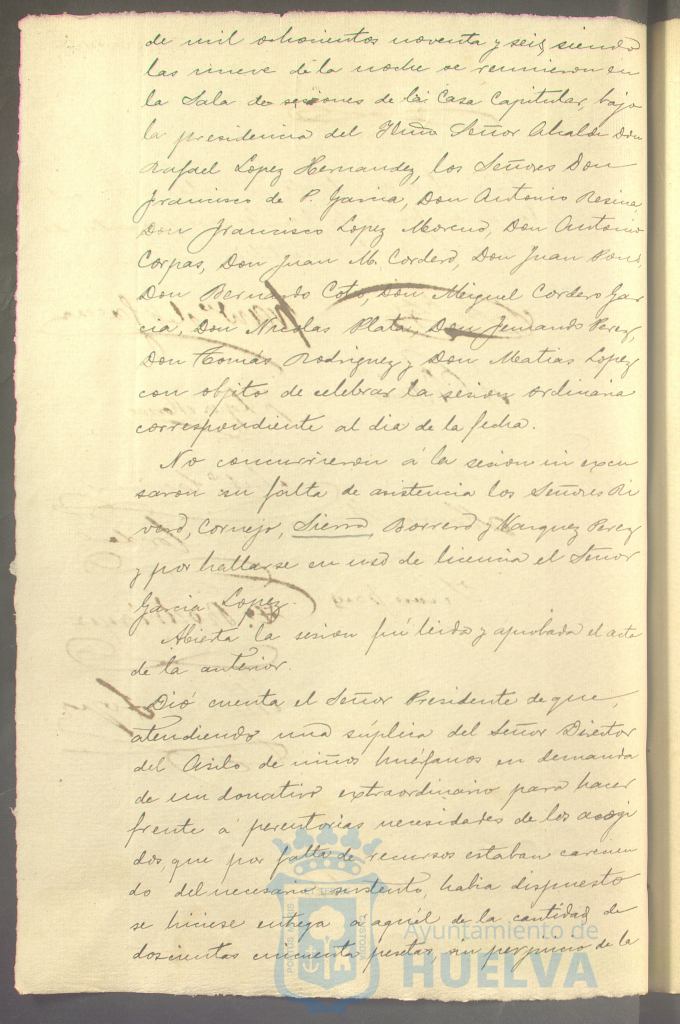 de mil ochocientos noventa y seis, siendo
las nueve de la noche se reunieron en
la Sala de sesiones de la Casa Capitular, bajo
la presidencia del Ylmo Señor Alcalde Don
Rafael Lopez Hernandez, los Señores Don
Francisco de P. Garcia, Don Antonio Resina
Don Francisco Lopez Moreno, Don Antonio
Corpas, Don Juan M. Cordero, Don Juan Pons,
Don Bernardo Coto, Don Miguel Cordero Gar
cia, Don Nicolas Plata, Don Fernando Perez,
Don Tomás Rodriguez y Don Matias Lopez
con objeto de celebrar la sesion ordinaria
correspondiente al dia de la fecha.
No concurrieron á la sesion ni excu
saron su falta de asistencia los Señores Ri
vero, Cornejo, Sierra, Borrero y Vazquez Perez
y por hallarse en uso de licencia el Señor
Garcia Lopez.
Abierta la sesion fué leida y aprobada el acta
de la anterior.
Dió cuenta el Señor Presidente de que,
atendiendo una súplica del Señor Director
del Asilo de niños huérfanos en demanda
de un donativo extraordinario para hacer
frente á perentorias necesidades de los acogi
dos, que por falta de recursos estaban carecien
do del necesario sustento, habia dispuesto
se hiciese entrega a aquél de la cantidad de
doscientas cincuenta pesetas sin perjuicio de la
Ayuntamiento de
HUELVA